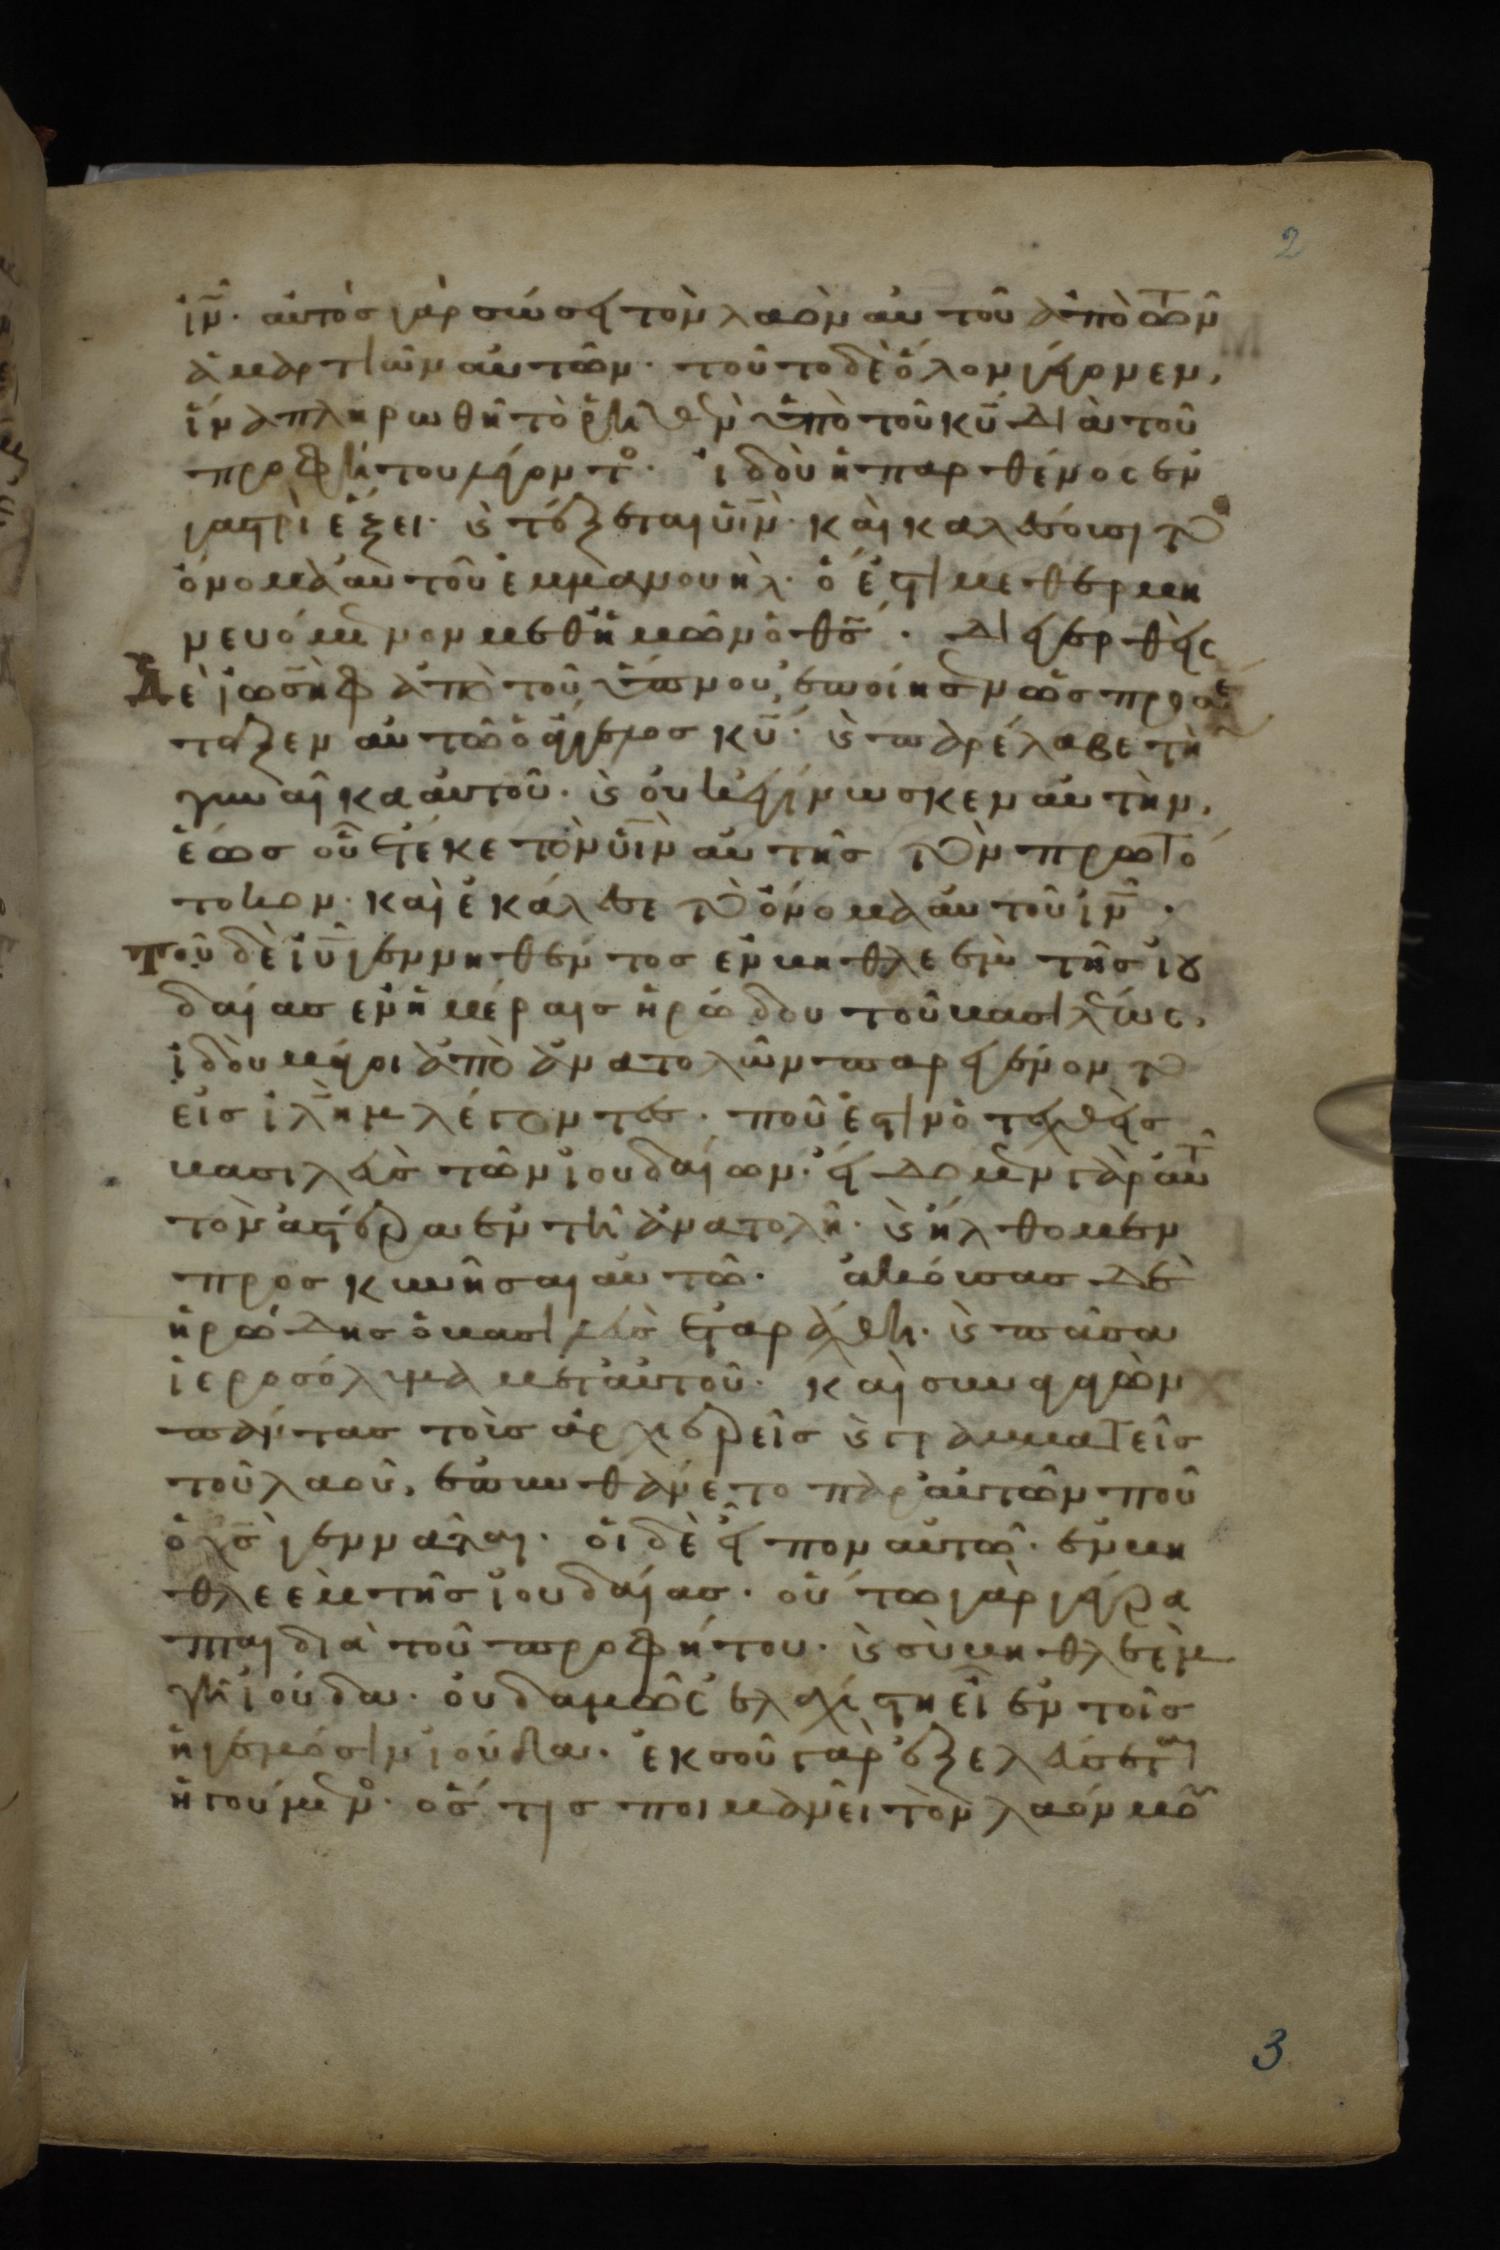 2
ἰν̅· αὐτὸς γὰρ σώσει τὸν λαὸν αὐτοῦ ἀπὸ τῶν
ἁμαρτιῶν αὐτῶν· τοῦτο δὲ ὅλον γέγονεν,
ἵνα πληρωθῆ τὸ ῥηθὲν ὑπὸ τοῦ κυ̅ διὰ τοῦ
προφήτου λέγοντο· ἰδοὺ ἡ παρθένος ἐν
γαστρὶ ἕξει· ϗ τέξεται υἱν̅· καὶ καλέσουσι τὸ
ὄνομα αὐτοῦ ἐμμανουὴλ· ὅ ἐστι μεθερμη
νευόμενον μεθ ἡμῶν ὁ θσ̅· διεγερθεὶς
δὲ ἰωσὴφ ἀπὸ τοῦ ὕπνου, ἐποίησεν ὡς προσέ
ταξεν αὐτῶ ὁ ἄγγελος κυ̅· ϗ παρέλαβε τὴν
γυναῖκα αὐτοῦ· ϗ οὐκ ἐγίνωσκεν αὐτὴν,
ἕως οὗ ἔτεκε τὸν υἱν̅ αὐτῆς τὸν πρωτό
τοκον· καὶ ἐκάλεσε τὸ ὄνομα αὐτοῦ ἰν̅·
Τοῦ δὲ ἰυ̅ γεννηθέντος ἐν βηθλεὲμ τῆς ἰου
δαίας ἐν ἡμέραις ἡρώδου τοῦ βασιλέως,
ἰδοὺ μάγοι ἀπὸ ἀνατολῶν παρεγένοντο
εἰς ἰλη̅μ λέγοντες· ποῦ ἐστιν ὁ τεχθεὶς
βασιλεὺς τῶν ἰουδαίων· εἴδομεν γὰρ αὐτοῦ
τὸν ἀστέρα ἐν τῆ ἀνατολῆ· ϗ ἤλθομεν
προσκυνῆσαι αὐτῶ· ἀκούσας δὲ
ἡρώδης ὁ βασιλεὺς ἐταράχθη· ϗ πᾶσα
ἱεροσόλυμα μετ αὐτοῦ· καὶ συναγαγὼν
πάντας τοὺς ἀρχιερεῖς ϗ γραμματεῖς
τοῦ λαοῦ, ἐπυνθάνετο παρ αὐτῶν ποῦ
ὁ χσ̅ γεννᾶται· οἱ δὲ εἶπον αὐτῶ· ἐν βη
θλεὲμ τῆς ἰουδαίας· οὕτω γὰρ γέγρα
πται διὰ τοῦ προφήτου· ϗ σὺ βηθλεὲμ
γῆ ἰούδα· οὐδαμῶς ἐλαχίστη εἶ ἐν τοῖς
ἡγεμόσιν ἰούδα· ἐκ σοῦ γὰρ ἐξελεύσεται
ἡγούμενος· ὅστις ποιμανεῖ τὸν λαόν μου
3